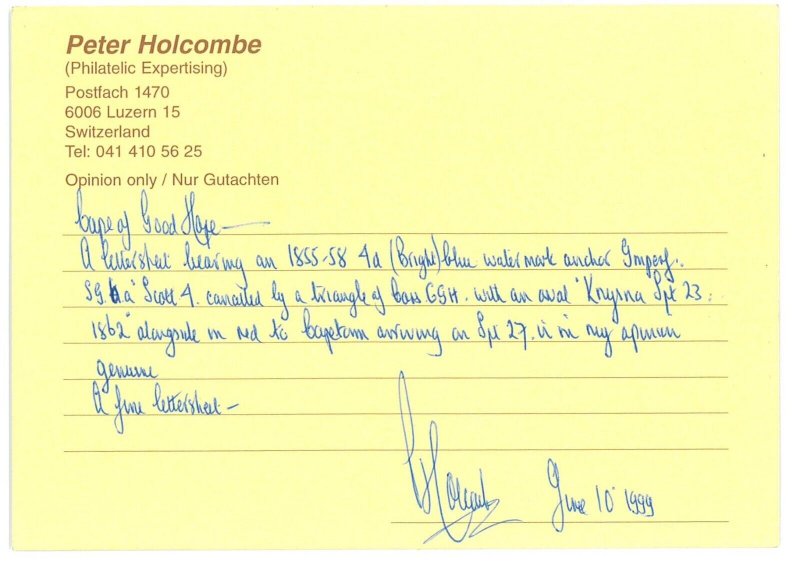 Peter Holcombe
(Philatelic Expertising)
Postfach 1470
6006 Luzern 15
Switzerland
Tel: 041 410 56 25
Opinion only / Nur Gutachten
Cape of Good Hope —
A lettersheet bearing an 1855-58 4d (Bright) blue watermark anchor Imperf.
SG. 6a Scott 4. cancelled by a triangle of bars CGH. with an oval "Knysna Spt 23:
1862" alongside in red to Capetown arriving on Spt 27. is in my opinion
genuine
A fine lettersheet —
Holcombe June 10 1999